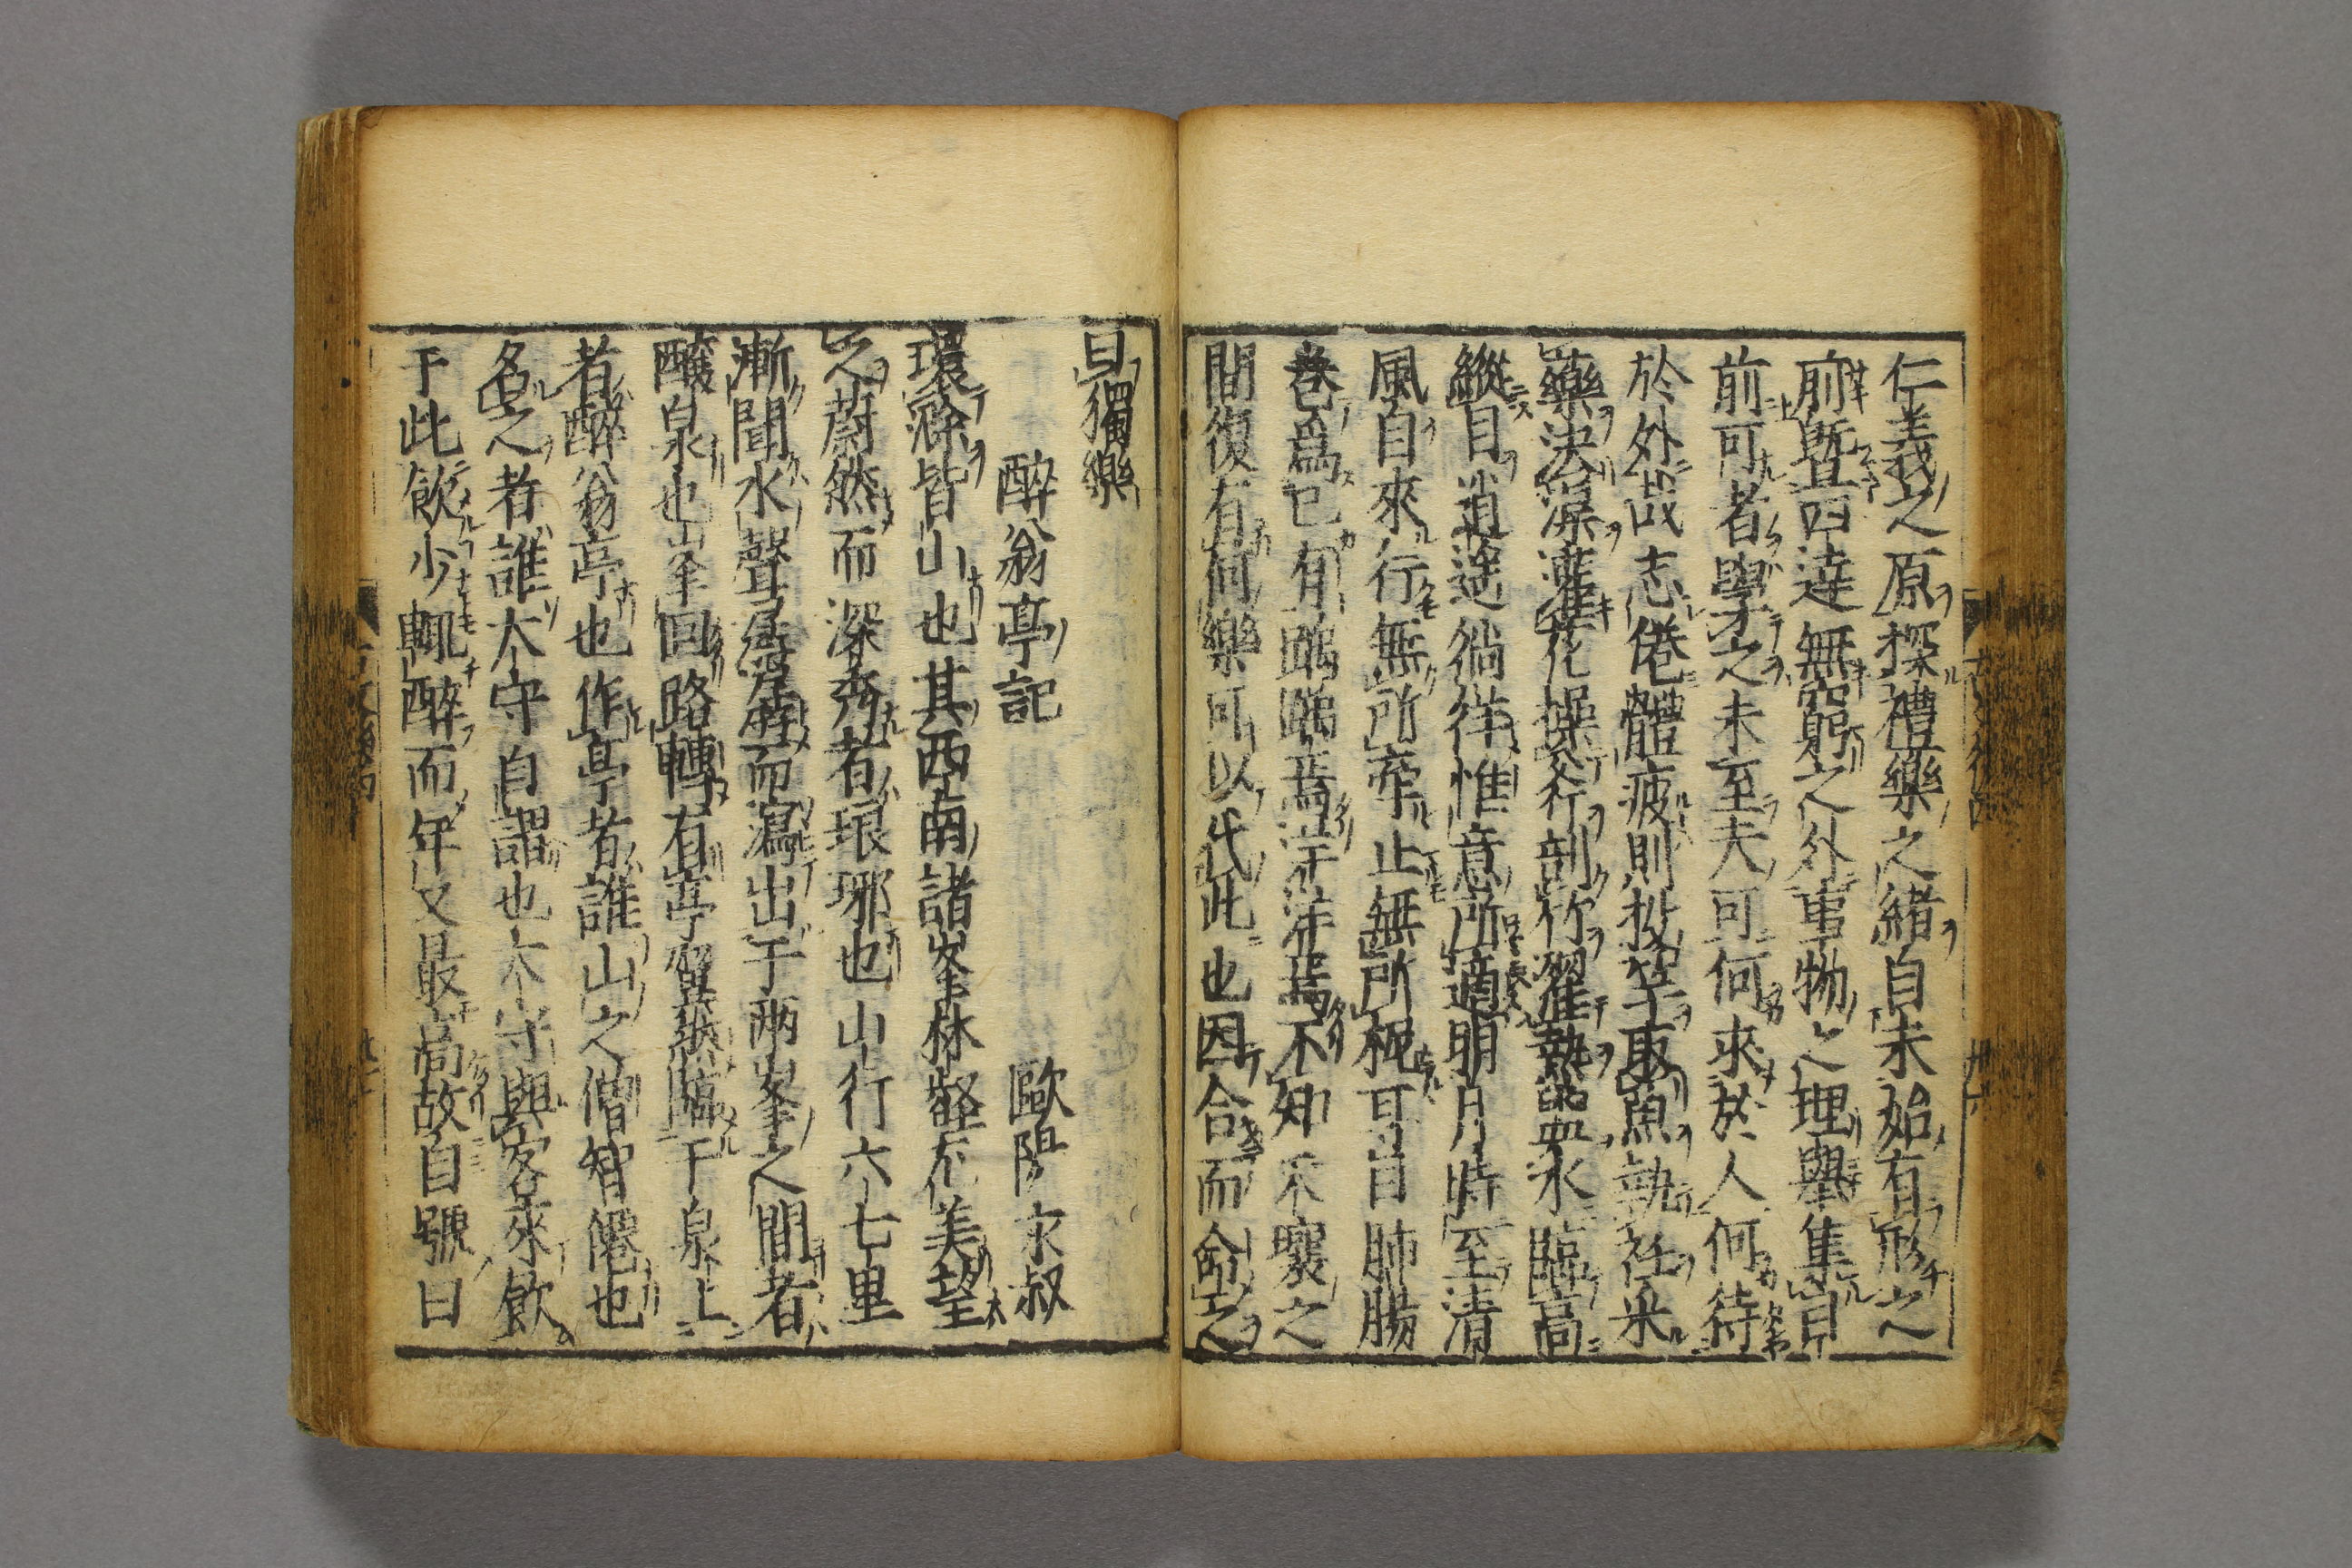 仁義之原探禮樂之緒自未始有形之
前曁四達無窮之外事物之理舉集目
前可者學之未至夫可何求於人何待
於外哉志倦體疲則投竿取魚執衽采
藥決渠灌花操斧剖竹濯熱盥水臨高
縱目逍遥徜徉惟意所適明月時至清
風自來行無所牽止無所柅耳目肺腸
卷爲己有踽踽焉洋洋焉不知天壤之
間復有何樂可以代此也因合而命之
曰獨樂
醉翁亭記 歐陽永叔
環滁皆山也其西南諸峯林壑尤美望
之蔚然而深秀者琅琊也山行六七里
漸聞水聲潺潺而瀉出于兩峯之間者
釀泉也峯回路轉有亭翼然臨于泉上
者醉翁亭也作亭者誰山之僧智僊也
名之者誰太守自謂也太守與客來飲
于此飲少輒醉而年又最高故自號曰